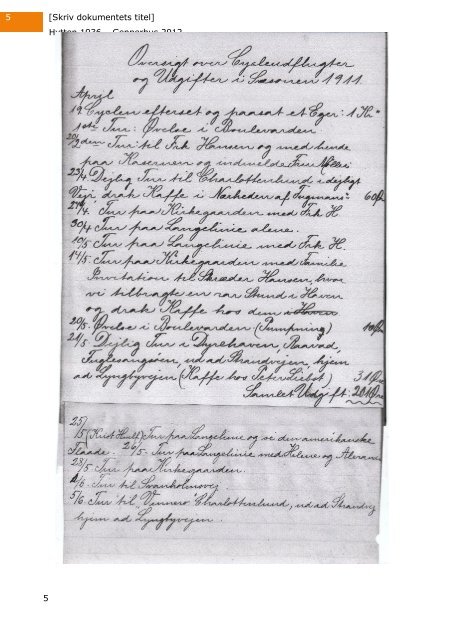 5
[Skriv dokumentets titel]
Oversigt over Cycleudflugter
og Udgifter i Sæsonen 1911.
April
19. Cyclen efterset og paasat et Eger: 1 Kr"
1ste Tur: Øvelse i Boulevarden.
20/4 2den Tur til Frk Hansen og med hende
paa Kasernen og indmelde Fru Møller
23/4 Dejlig Tur til Charlottenlund i dejligt
Vejr, drak Kaffe i Nærheden af 60 Ør
27/4. Tur paa Kirkegaarden med Frk H.
30/4 Tur paa Langelinie alene.
10/5 Tur paa Langelinie med Frk H.
14/5. Tur paa Kirkegaarden med Familie
Invitation til Skræder Hansen, hvor
vi tilbragte en rar Stund i Haven
og drak Kaffe hos dem i Haven
20/5. Øvelse i Boulevarden (Pumpning) 10 Ør
21/5 Dejlig Tur i Dyrehaven, Raavad,
Fuglesangsøen, ud ad Strandvejen, hjem
ad Lyngbyvejen (Kaffe hos Peter Liebst) 31 Øre
Samlet Udg ft: 201 Øre
25/5 Tur paa Langelinie og se den amerikanske
Flaade. 26/5. Tur paa Langelinie med Helene og
28/5 Tur paa Kirkegaarden.
4/6. Tur til Svanholmsvej.
5/6. Tur til "Vennero" Charlottenlund, ud ad Strandvej
hjem ad Lyngbyvejen.
5